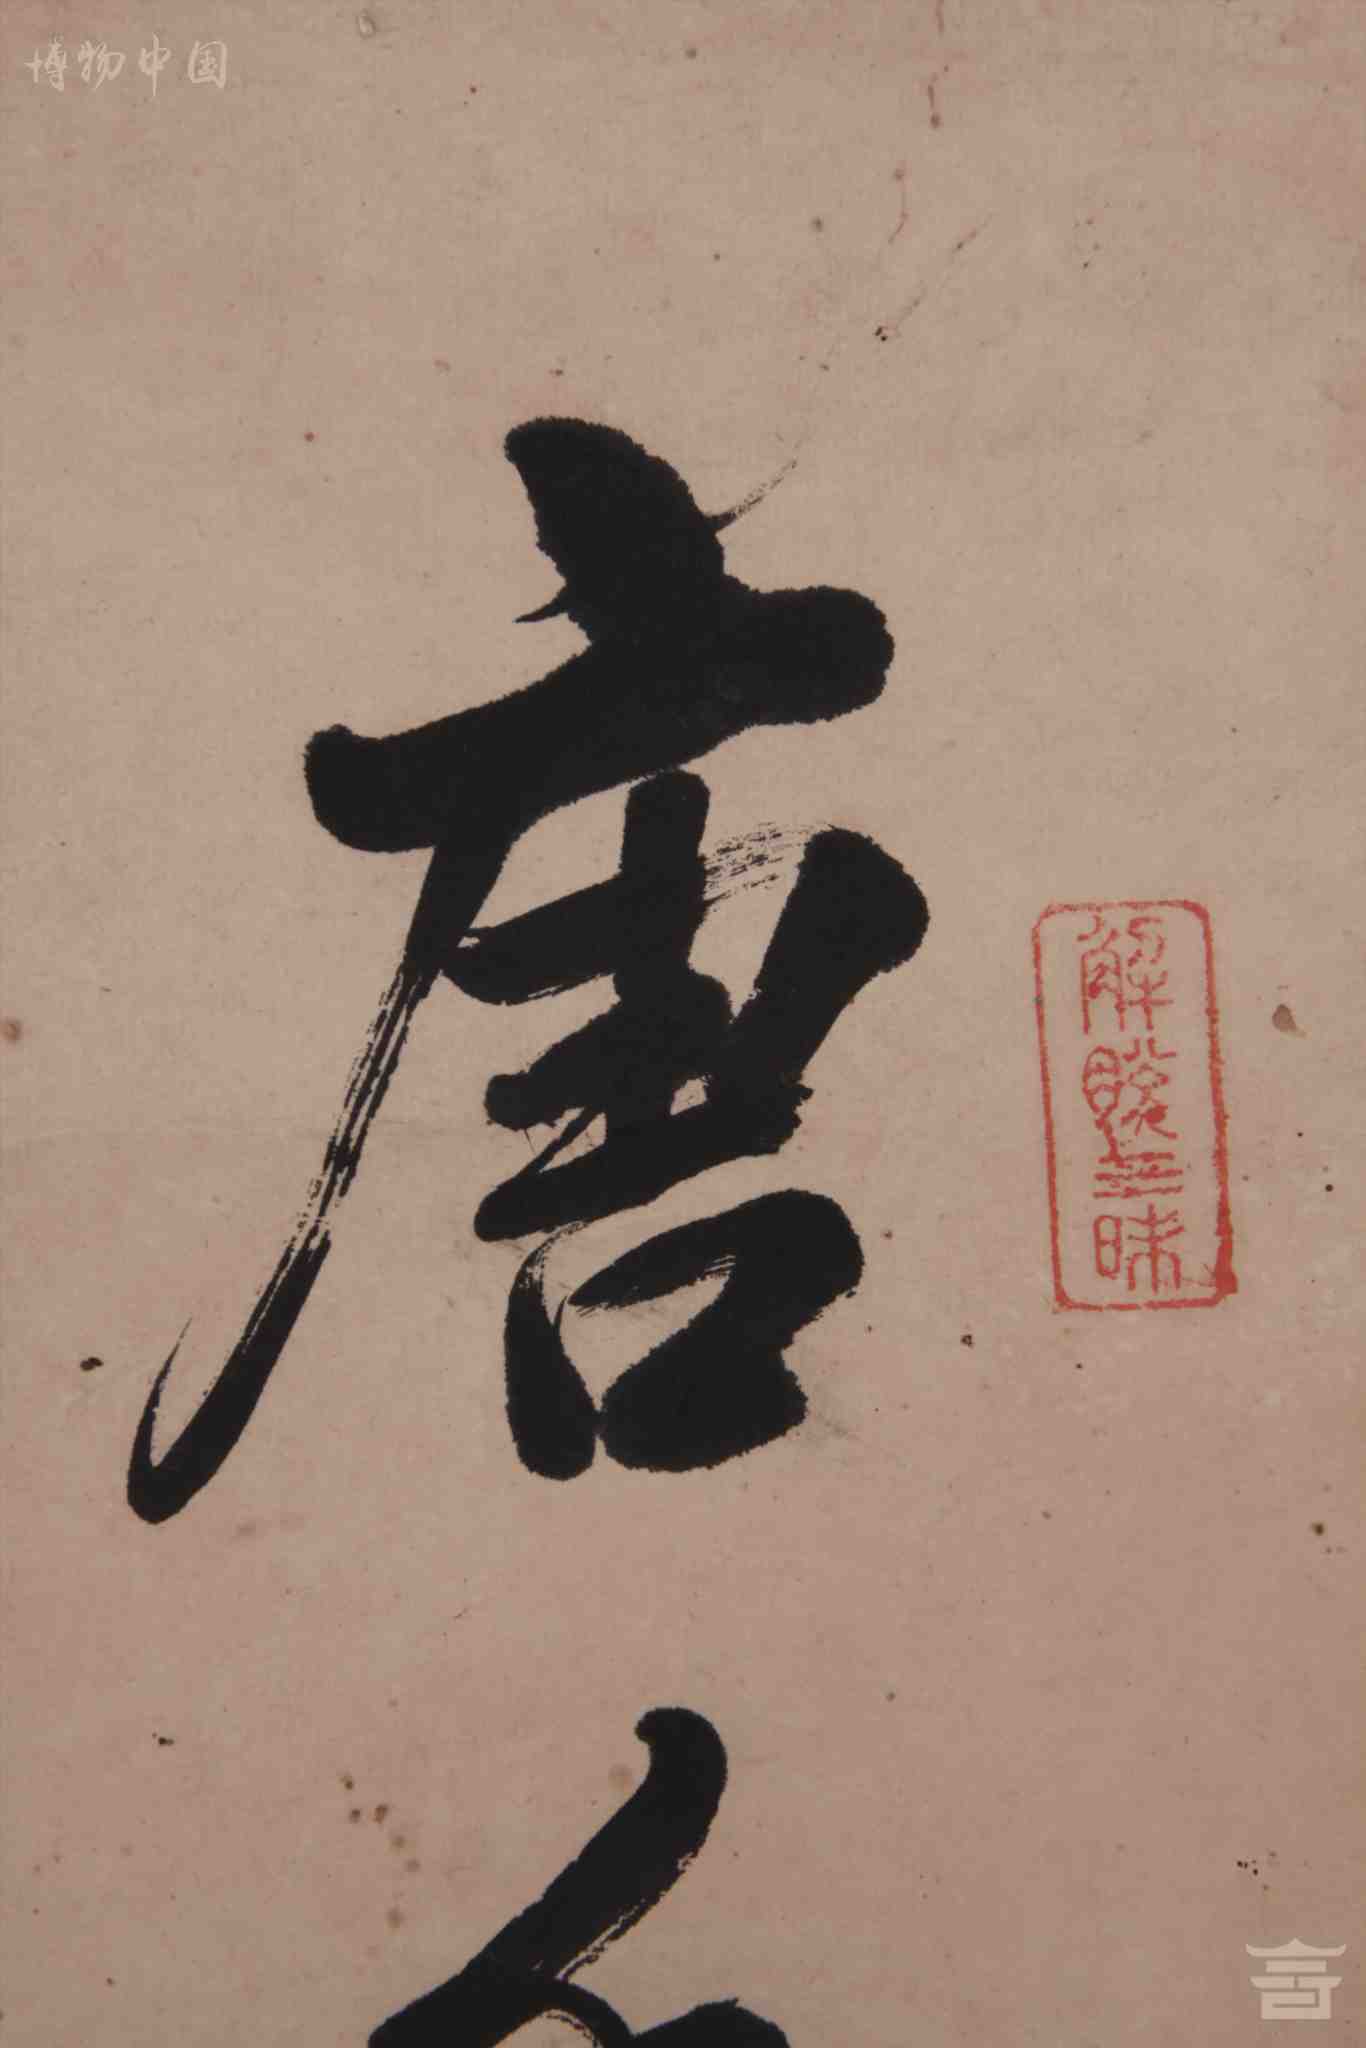 博物中国
唐
解脱三昧